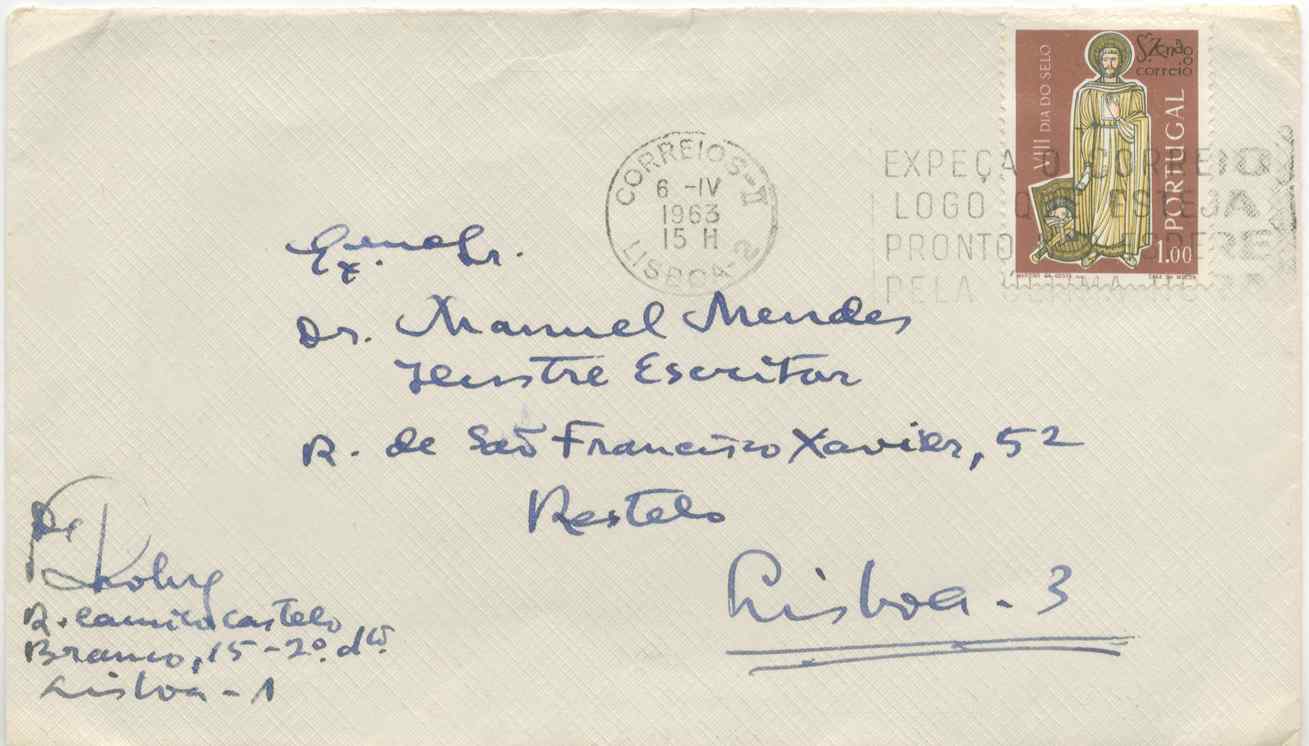 VIII DIA DO SELO
S. Zenão
o
correio
PORTUGAL
1.00
CORREIOS-II
6 -IV
1963
15 H
LISBOA-2
EXPEÇA O CORREIO
LOGO QUE ESTEJA
PRONTO
PELA
Exmo Sr.
Dr. Manuel Mendes
Ilustre Escritor
R. de São Francisco Xavier, 52
Restelo
Lisboa - 3
De
R. Camilo Castelo
Branco, 15 - 2º. dto.
Lisboa - 1